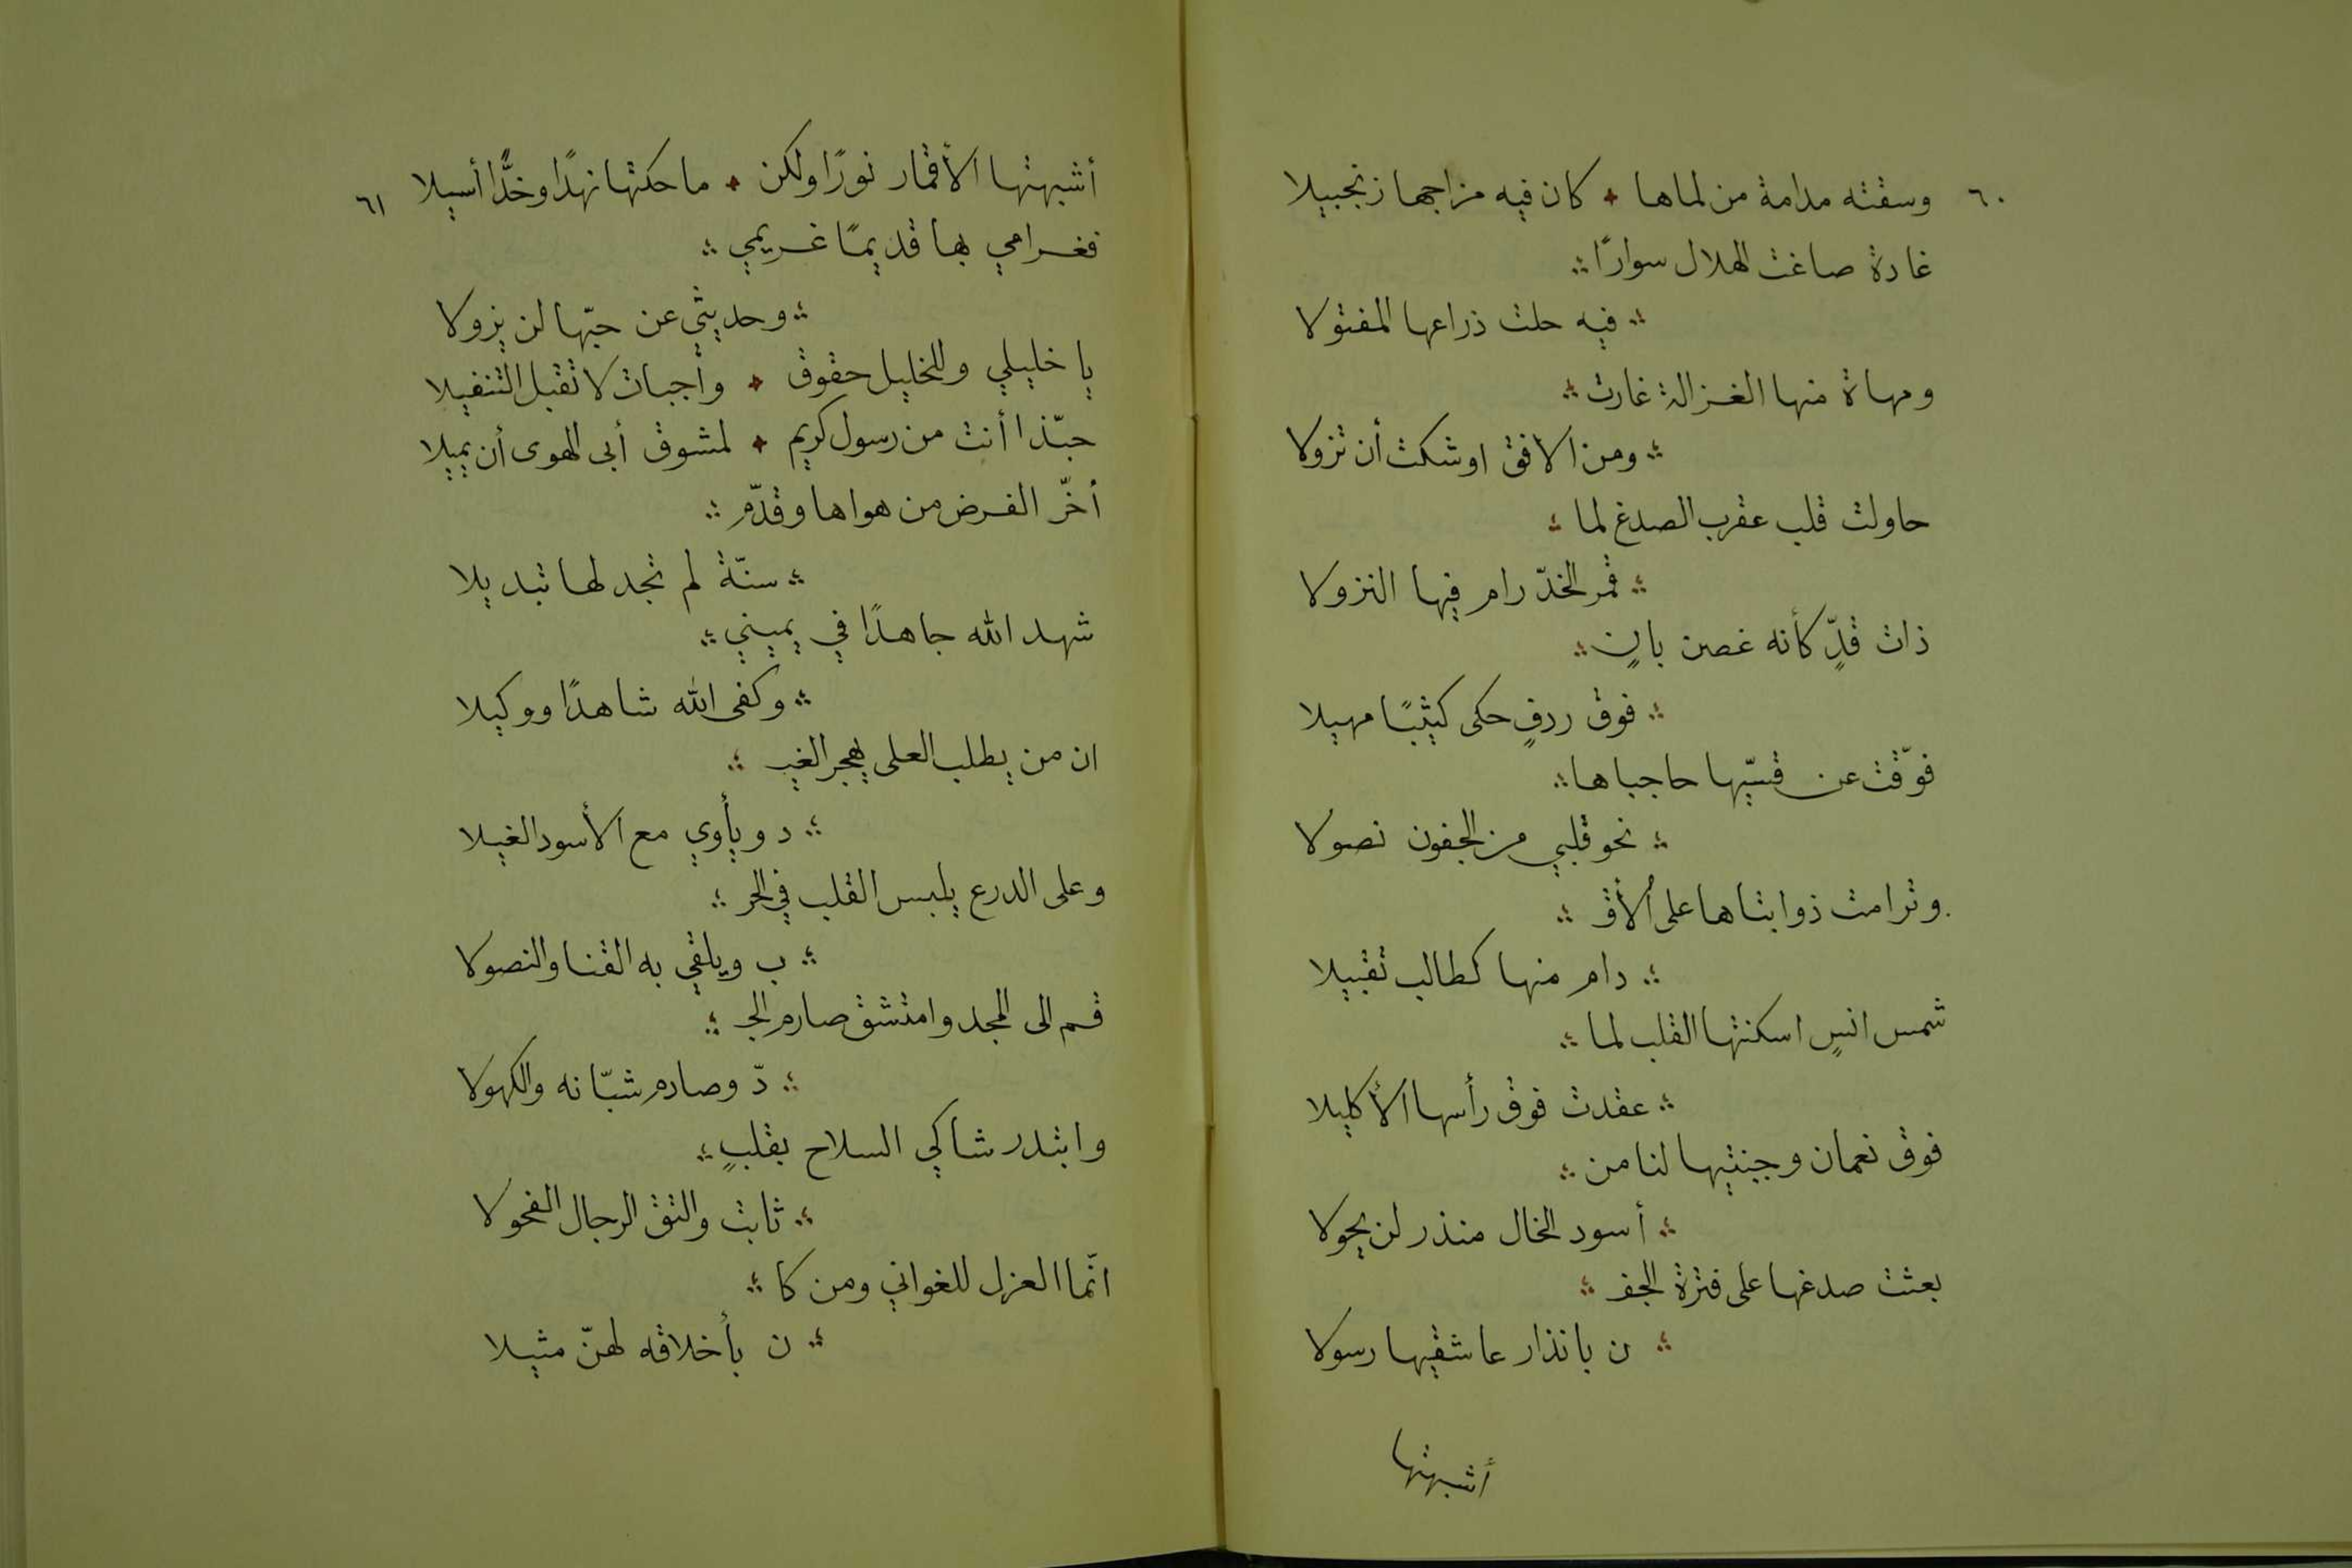 ٦٠
وسقته مدامة من لماها ٭ كان فيه مزاجها زنجبيلا
غادة صاغت الهلال سوارًا
فيه حلت ذراعها المفتولا
ومهاة منها الغزالة غارت
ومن الافق اوشكت أن تزولا
حاولت قلب عقرب الصدغ لما
قمر الخدّ رام فيها النزولا
ذات قدٍّ كأنه غصن بانٍ
فوق ردفٍ حكى كثيبًا مهيلا
فوّقت عن قسيّها حاجباها
نحو قلبي من الجفون نصولا
وترامت ذوابتاها على الأُفق
رام منها كطالب تقبيلا
شمس انسٍ اسكنتها القلب لما
عقدت فوق رأسها الأكليلا
فوق نعمان وجنتيها لنا من
أسود الخال منذر لن يحولا
بعثت صدغها على فترة الجفـ
ـن بانذار عاشقيها رسولا
أشبهتها
٦١
أشبهتها الأقمار نورًا ولكن ٭ ما حكتها نهدًا وخدًّا أسيلا
فغرامي بها قديمًا غريمي
وحديثي عن حبّها لن يزولا
يا خليلي وللخليل حقوق ٭ وأجبات لا تقبل التنفيلا
حبّذا أنت من رسول كريم ٭ لمشوق أبى الهوى أن يميلا
أخّر الفرض من هواها وقدّم
سنّة لم تجد لها تبديلا
شهد الله جاهدًا في يميني
وكفى الله شاهدًا ووكيلا
ان من يطلب العلى يهجر الغيـ
ـد ويأوي مع الأسود الغيلا
وعلى الدرع يلبس القلب في الحر
ب ويلقي به القنا والنصولا
قم الى المجد وامتشق صارم الجـ
ـدّ وصادم شبّانه والكهولا
وابتدر شاكي السلاح بقلبٍ
ثابت والتق الرجال الفحولا
انّما العزل للغواني ومن كا
ن بأخلاقه لهنّ مثيلا